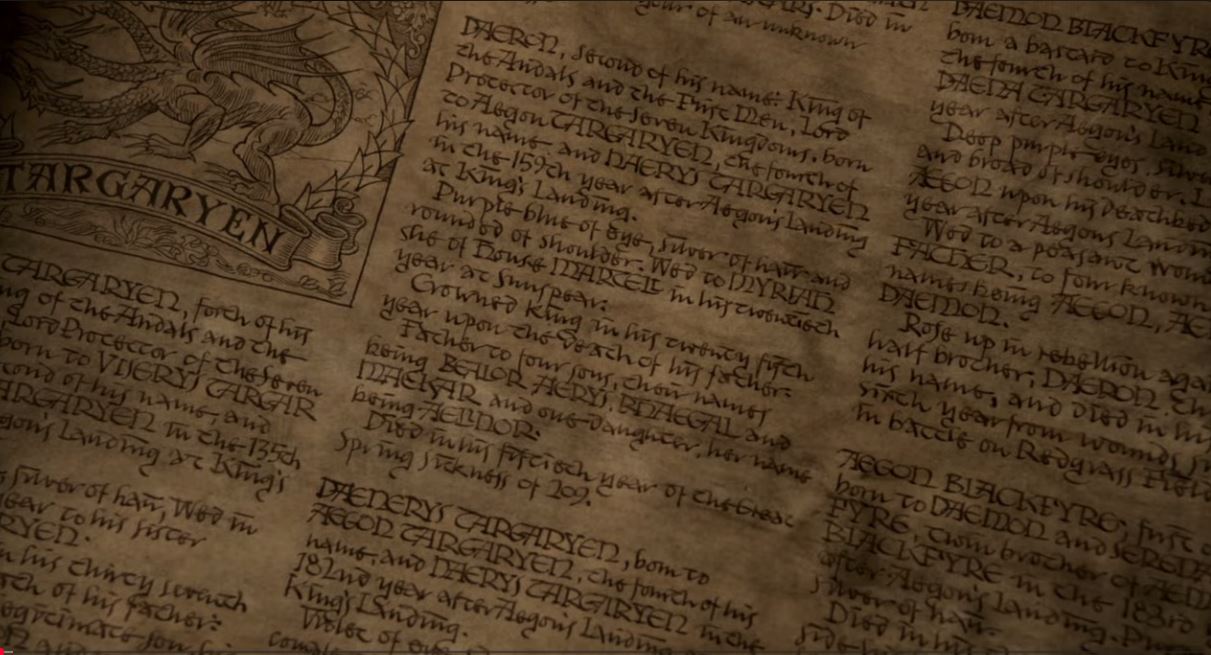 TARGARYEN
TARGARYEN, forth of his
of the Andals and the
Lord Protector of the Seven
born to VISERYS TARGAR
of his name, and
TARGARYEN in the 135th
Landing at King's
silver of hair, Wed in
year to his sister
his thirty seventh
of his father:
year of an unknown
Died in
DAERON, second of his name: King of
the Andals and the First Men, Lord
Protector of the Seven Kingdoms, born
to Aegon TARGARYEN, the fourth of
his name and NAERYS TARGARYEN
in the 159th year after Aegon's Landing
at King's Landing.
Purple blue of Eye, silver of hair and
rounded of shoulder. Wed to MYRIAH
she of House MARTELL in his twentieth
year at Sunspear:
Crowned King in his twenty fifth
year upon the Death of his father.
Father to four sons, their names
being BEALOR AERYS, RHAEGAL and
MAEKAR and one daughter, her name
being AELINOR.
Died in his fiftieth year of the Great
Spring Sickness of 209.
DAENERYS TARGARYEN, born to
AEGON TARGARYEN, the fourth of his
name, and NAERYS TARGARYEN in the
182nd year after Aegon's Landing
King's Landing.
Violet of
DAEMON BLACKFYRE
born a bastard to King
the fourth of his name
DAENA TARGARYEN
year after Aegon's Land
Deep purple eyes, silver
and broad of shoulder.
AEGON upon his Deathbed
year after Aegons Landin
Wed to a peasant wom
FATHER, to four known
names being AEGON, AE
DAEMON.
Rose up in rebellion aga
half brother, DAERON
his name, and died in his
sixth year from wounds
in battle on Redgrass Field
AEGON BLACKFYRE, first
born to DAEMON and
FYRE, twin brother of AEM
BLACKFYRE in the 183rd
after Aegon's Landing.
Silver of hair.
Died in his